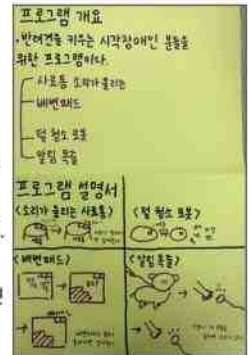 프로그램 개요
· 반려견을 키우는 시각장애인 분들을
위한 프로그램이다.
사료통 소리가 울리는
배변패드
털 청소 로봇
알림 목줄
프로그램 설명서
<소리가 울리는 사료통>
<털 청소 로봇>
<배변패드>
<알림 목줄>